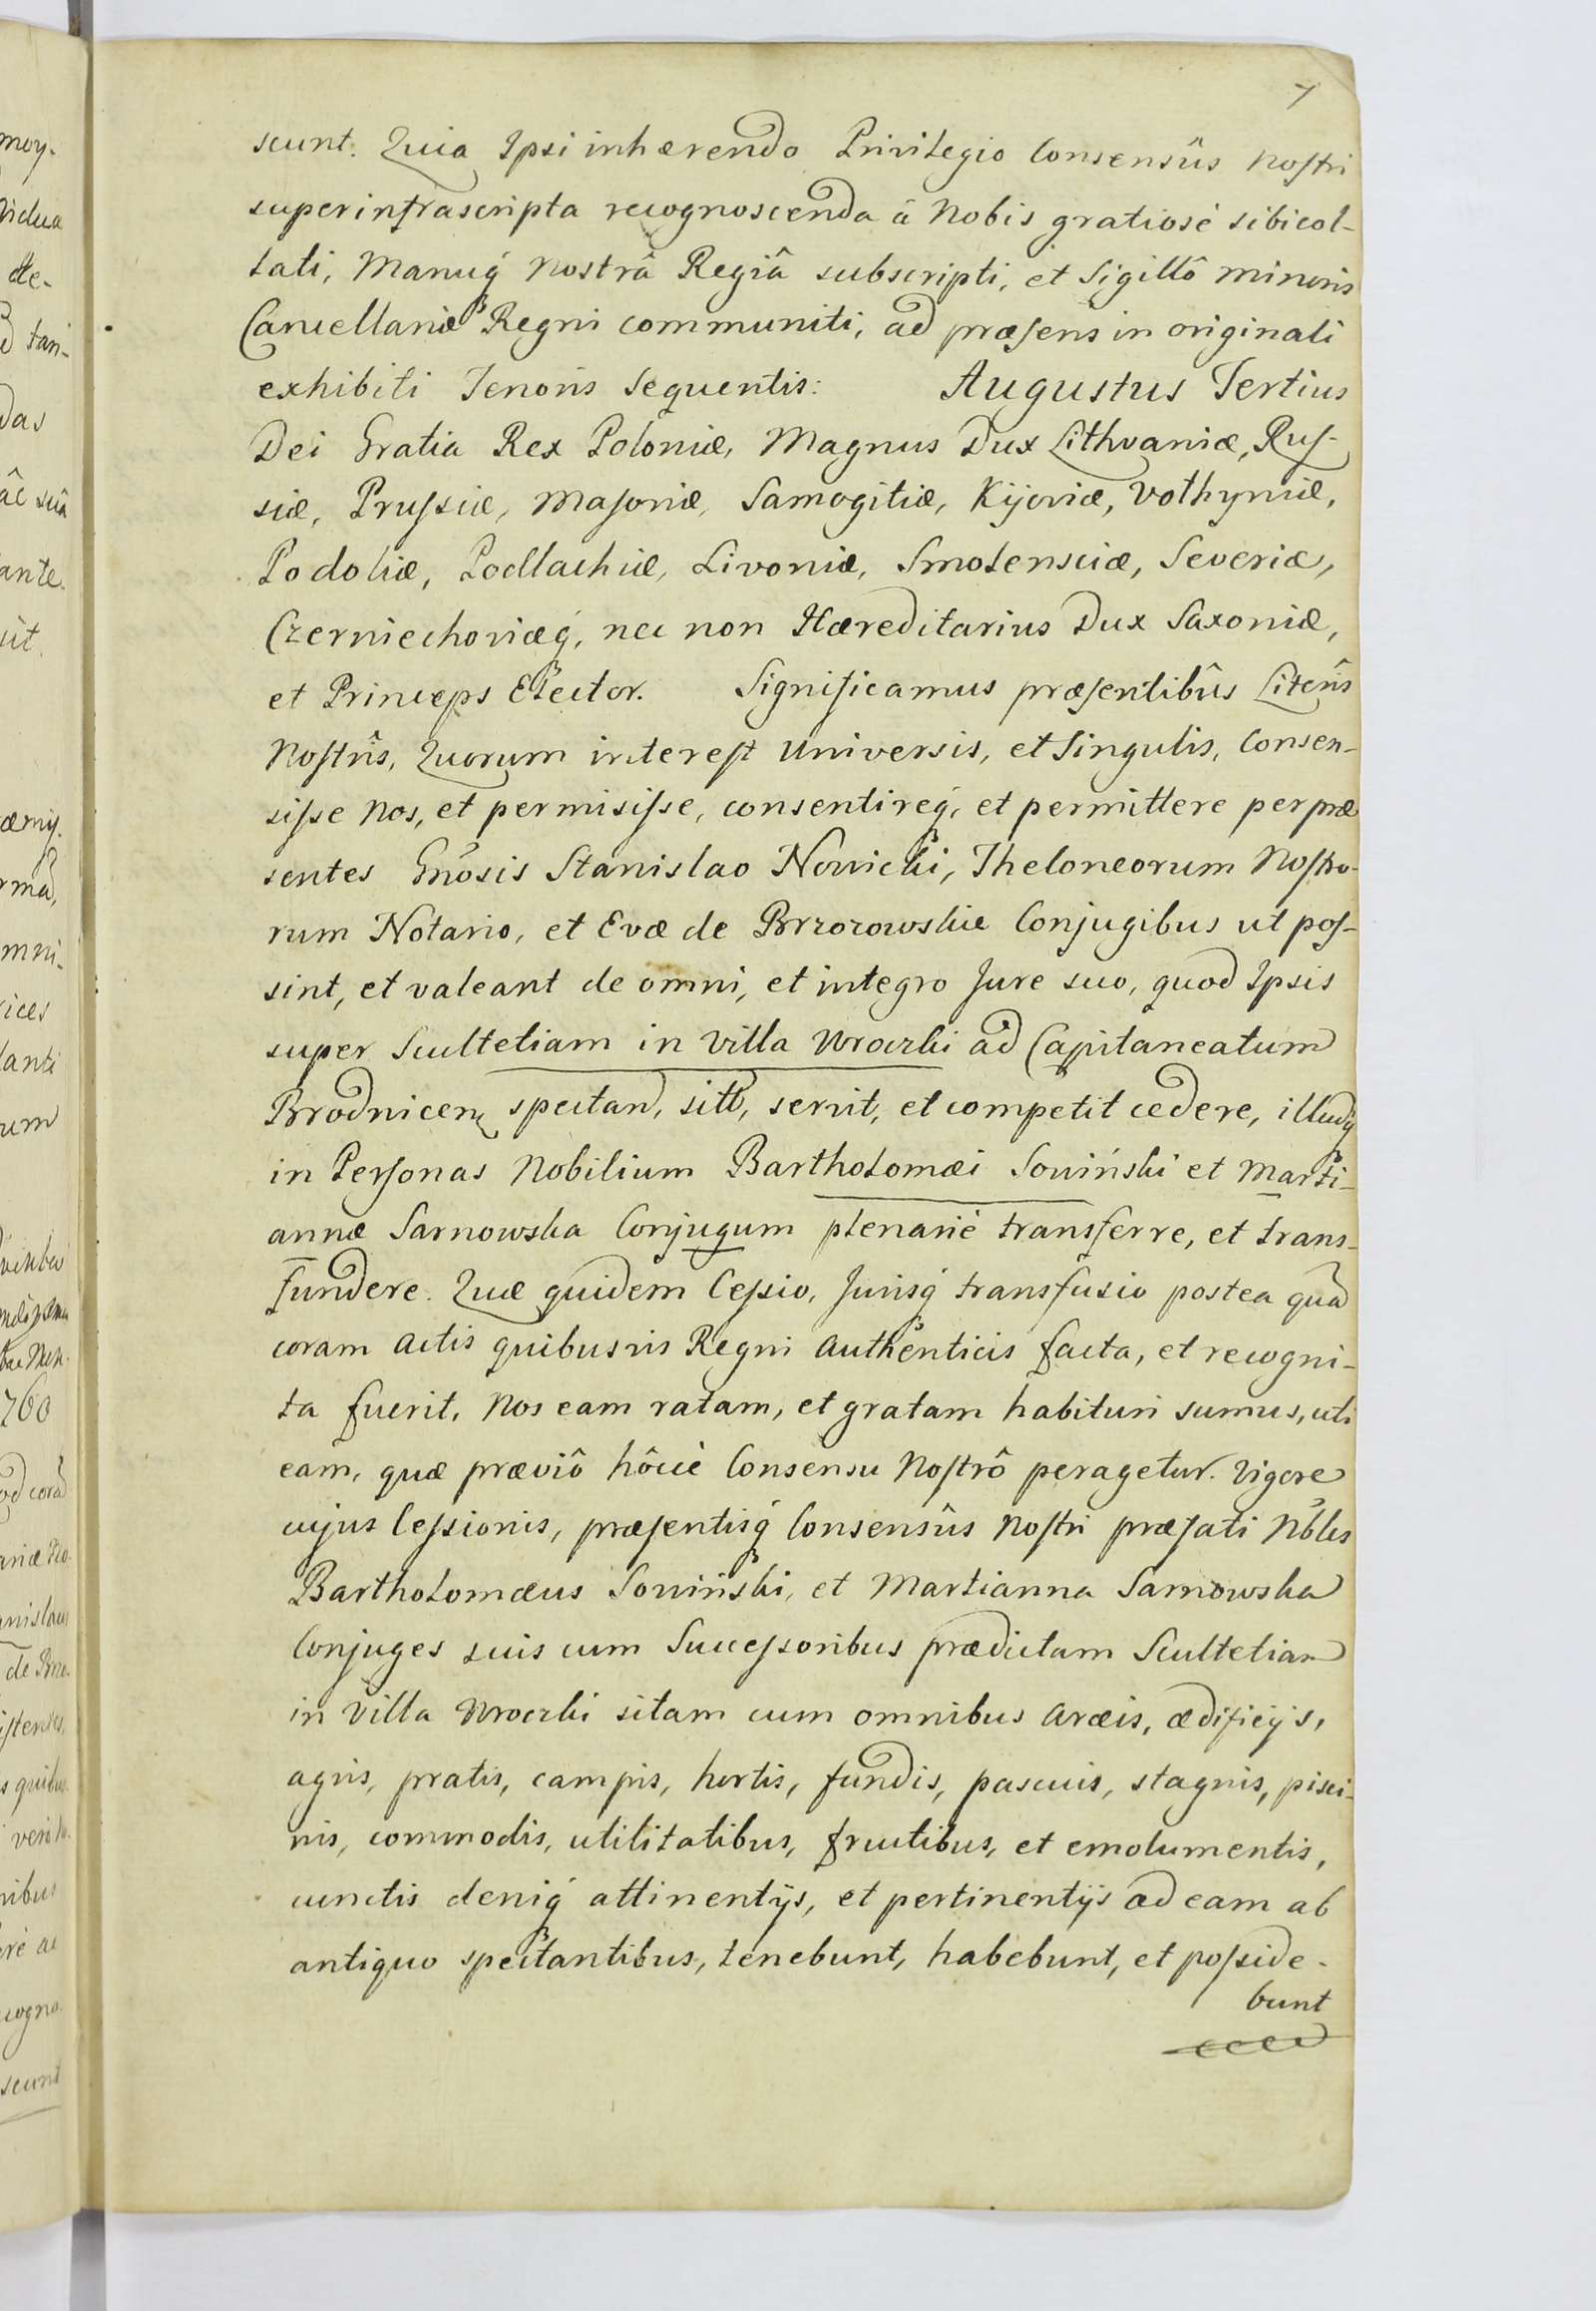 7
scunt. Quia Ipsi inhærendo Privilegio Consensûs Nostri
super infrascripta recognoscenda â Nobis gratiosè sibi col-
lati, Manuq́ Nostrâ Regiâ subscripti, et Sigillô Minoris
Cancellariæ Regni communiti, ad præsens in originali
exhibiti Tenoris Sequentis: Augustus Tertius
Dei Gratia Rex Poloniæ, Magnus Dux Lithvaniæ, Rus-
siæ, Prussiæ, Masoviæ, Samogitiæ, Kijoviæ, Volhyniæ,
Podoliæ, Podlachiæ, Livoniæ, Smolensciæ, Severiæ,
Czerniechoviæq́, nec non Hæreditarius Dux Saxoniæ,
et Princeps Elector. Significamus præsentibûs Literîs
Nostrîs, Quorum interest Universis, et Singulis, Consen-
sisse Nos, et permisisse, consentireq́, et permittere per præ
sentes Gnosis Stanislao Nowicki, Theloneorum Nostro-
rum Notario, et Evæ de Brzozowskie Conjugibus ut pos-
sint, et valeant de omni, et integro Jure suo, quod Ipsis
super Scultetiam in Villa Wroczki ad Capitaneatum
Brodnicen spectan, sitt, servit, et competit cedere, illudq́
in Personas Nobilium Bartholomæi Sowiński et Marti-
annæ Sarnowska Conjugum plenariè transferre, et trans-
fundere. Quæ quidem Cessio, Jurisq́ transfusio postea quã
coram Actis quibusvis Regni Authenticis facta, et recogni-
ta fuerit, Nos eam ratam, et gratam habituri sumus, uti
eam, quæ præviô hôcce Consensu Nostrô peragetur. Vigore
cujus Cessionis, præsentisq́ Consensûs Nostri præfati Nbles
Bartholomæus Sowiński, et Martianna Sarnowska
Conjuges suis cum Successoribus prædictam Scultetiam
in Villa Wroczki sitam cum omnibus aræis, ædificijs,
agris, pratis, campis, hortis, fundis, pascuis, stagnis, pisci-
nis, commodis, utilitatibus, fructibus, et emolumentis,
cunctis deniq́ attinentijs, et pertinentijs ad eam ab
antiquo spectantibus, tenebunt, habebunt, et posside-
bunt